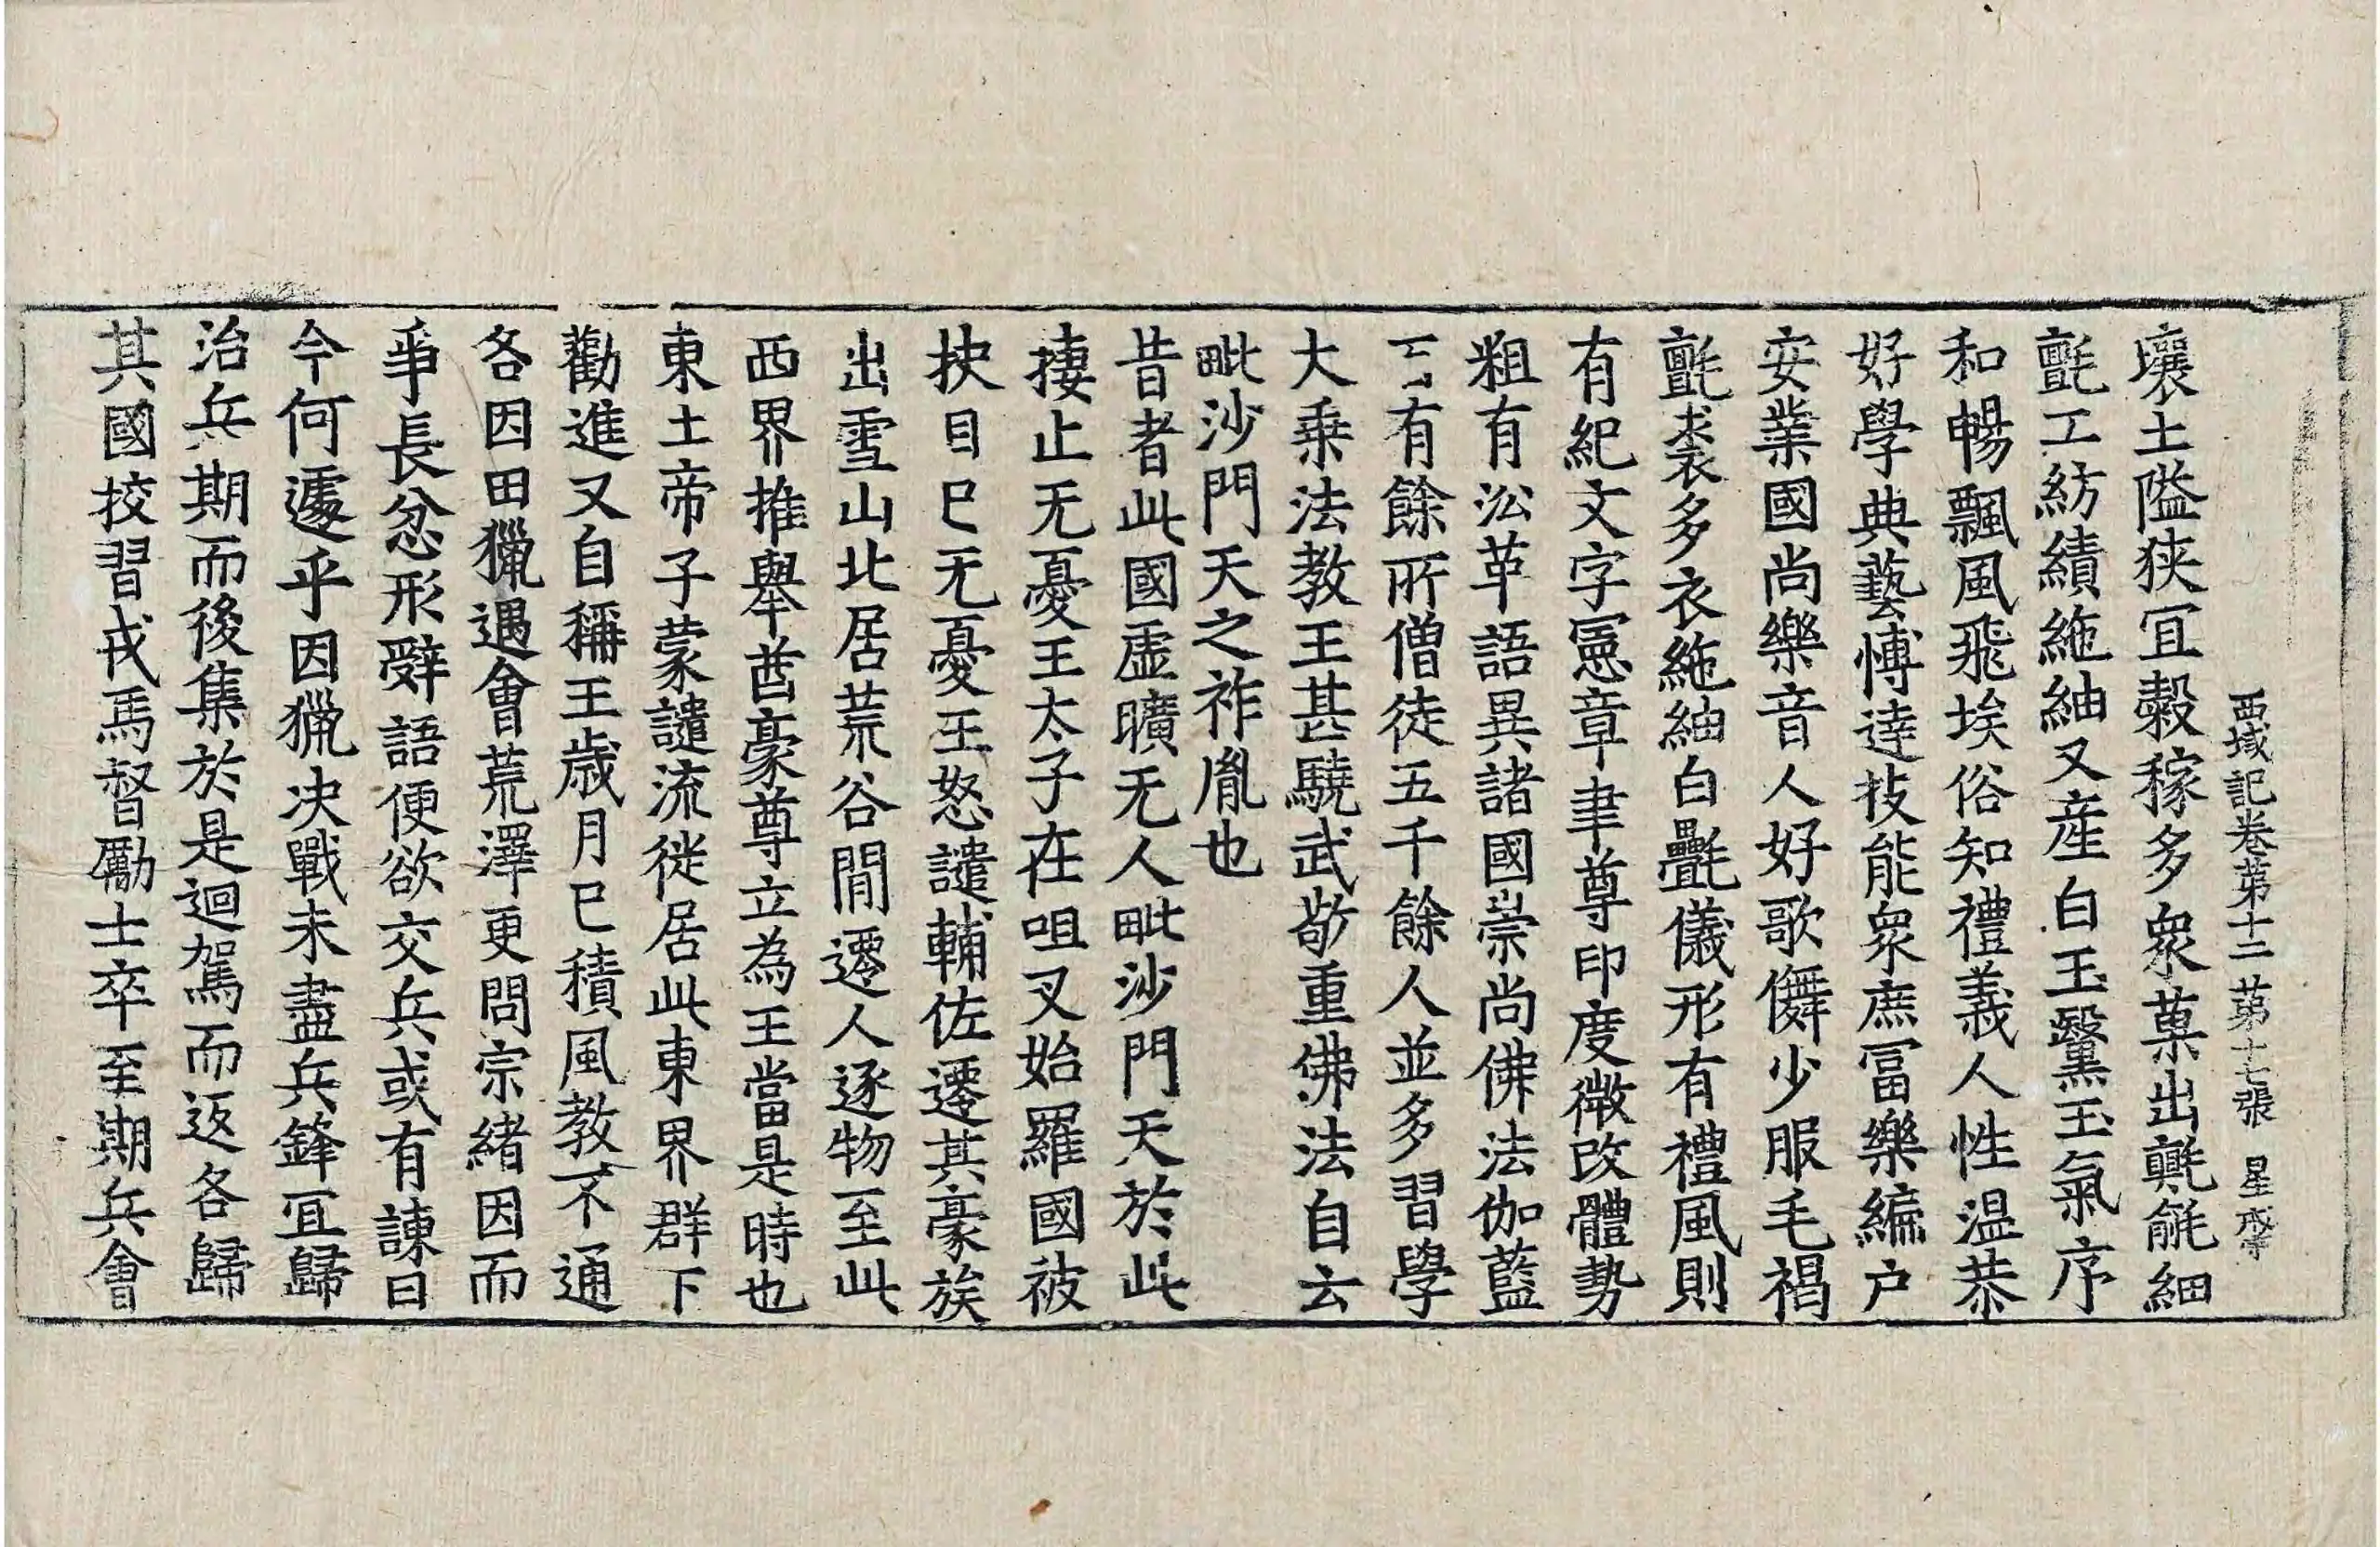 西域記卷苐十二 苐十七張 星
壤土隘狹宜穀稼多衆菓出氍毹細
氈工紡績絁紬又產白玉黳玉氣序
和暢飄風飛埃俗知禮義人性温恭
好學典藝愽達技能衆庶冨樂編户
安業國尚樂音人好歌儛少服毛褐
氈裘多衣絁紬白㲲儀形有禮風則
有紀文字憲章聿尊印度微改體勢
粗有沿革語異諸國崇尚佛法伽藍
百有餘所僧徒五千餘人並多習學
大乗法教王甚驍武敬重佛法自云
毗沙門天之祚胤也
昔者此國虛曠无人毗沙門天於此
捿止无憂王太子在呾叉始羅國被
抉目已无憂王怒譴輔佐遷其豪族
出雪山北居荒谷間遷人逐物至此
西界推舉酋豪尊立為王當是時也
東土帝子蒙譴流徙居此東界群下
勸進又自稱王歲月已積風教不通
各因田獵遇會荒澤更問宗緒因而
爭長忿形辭語便欲交兵或有諫曰
今何遽乎因獵决戰未盡兵鋒宜歸
治兵期而後集於是迴駕而返各歸
其國挍習戎馬督勵士卒至期兵會